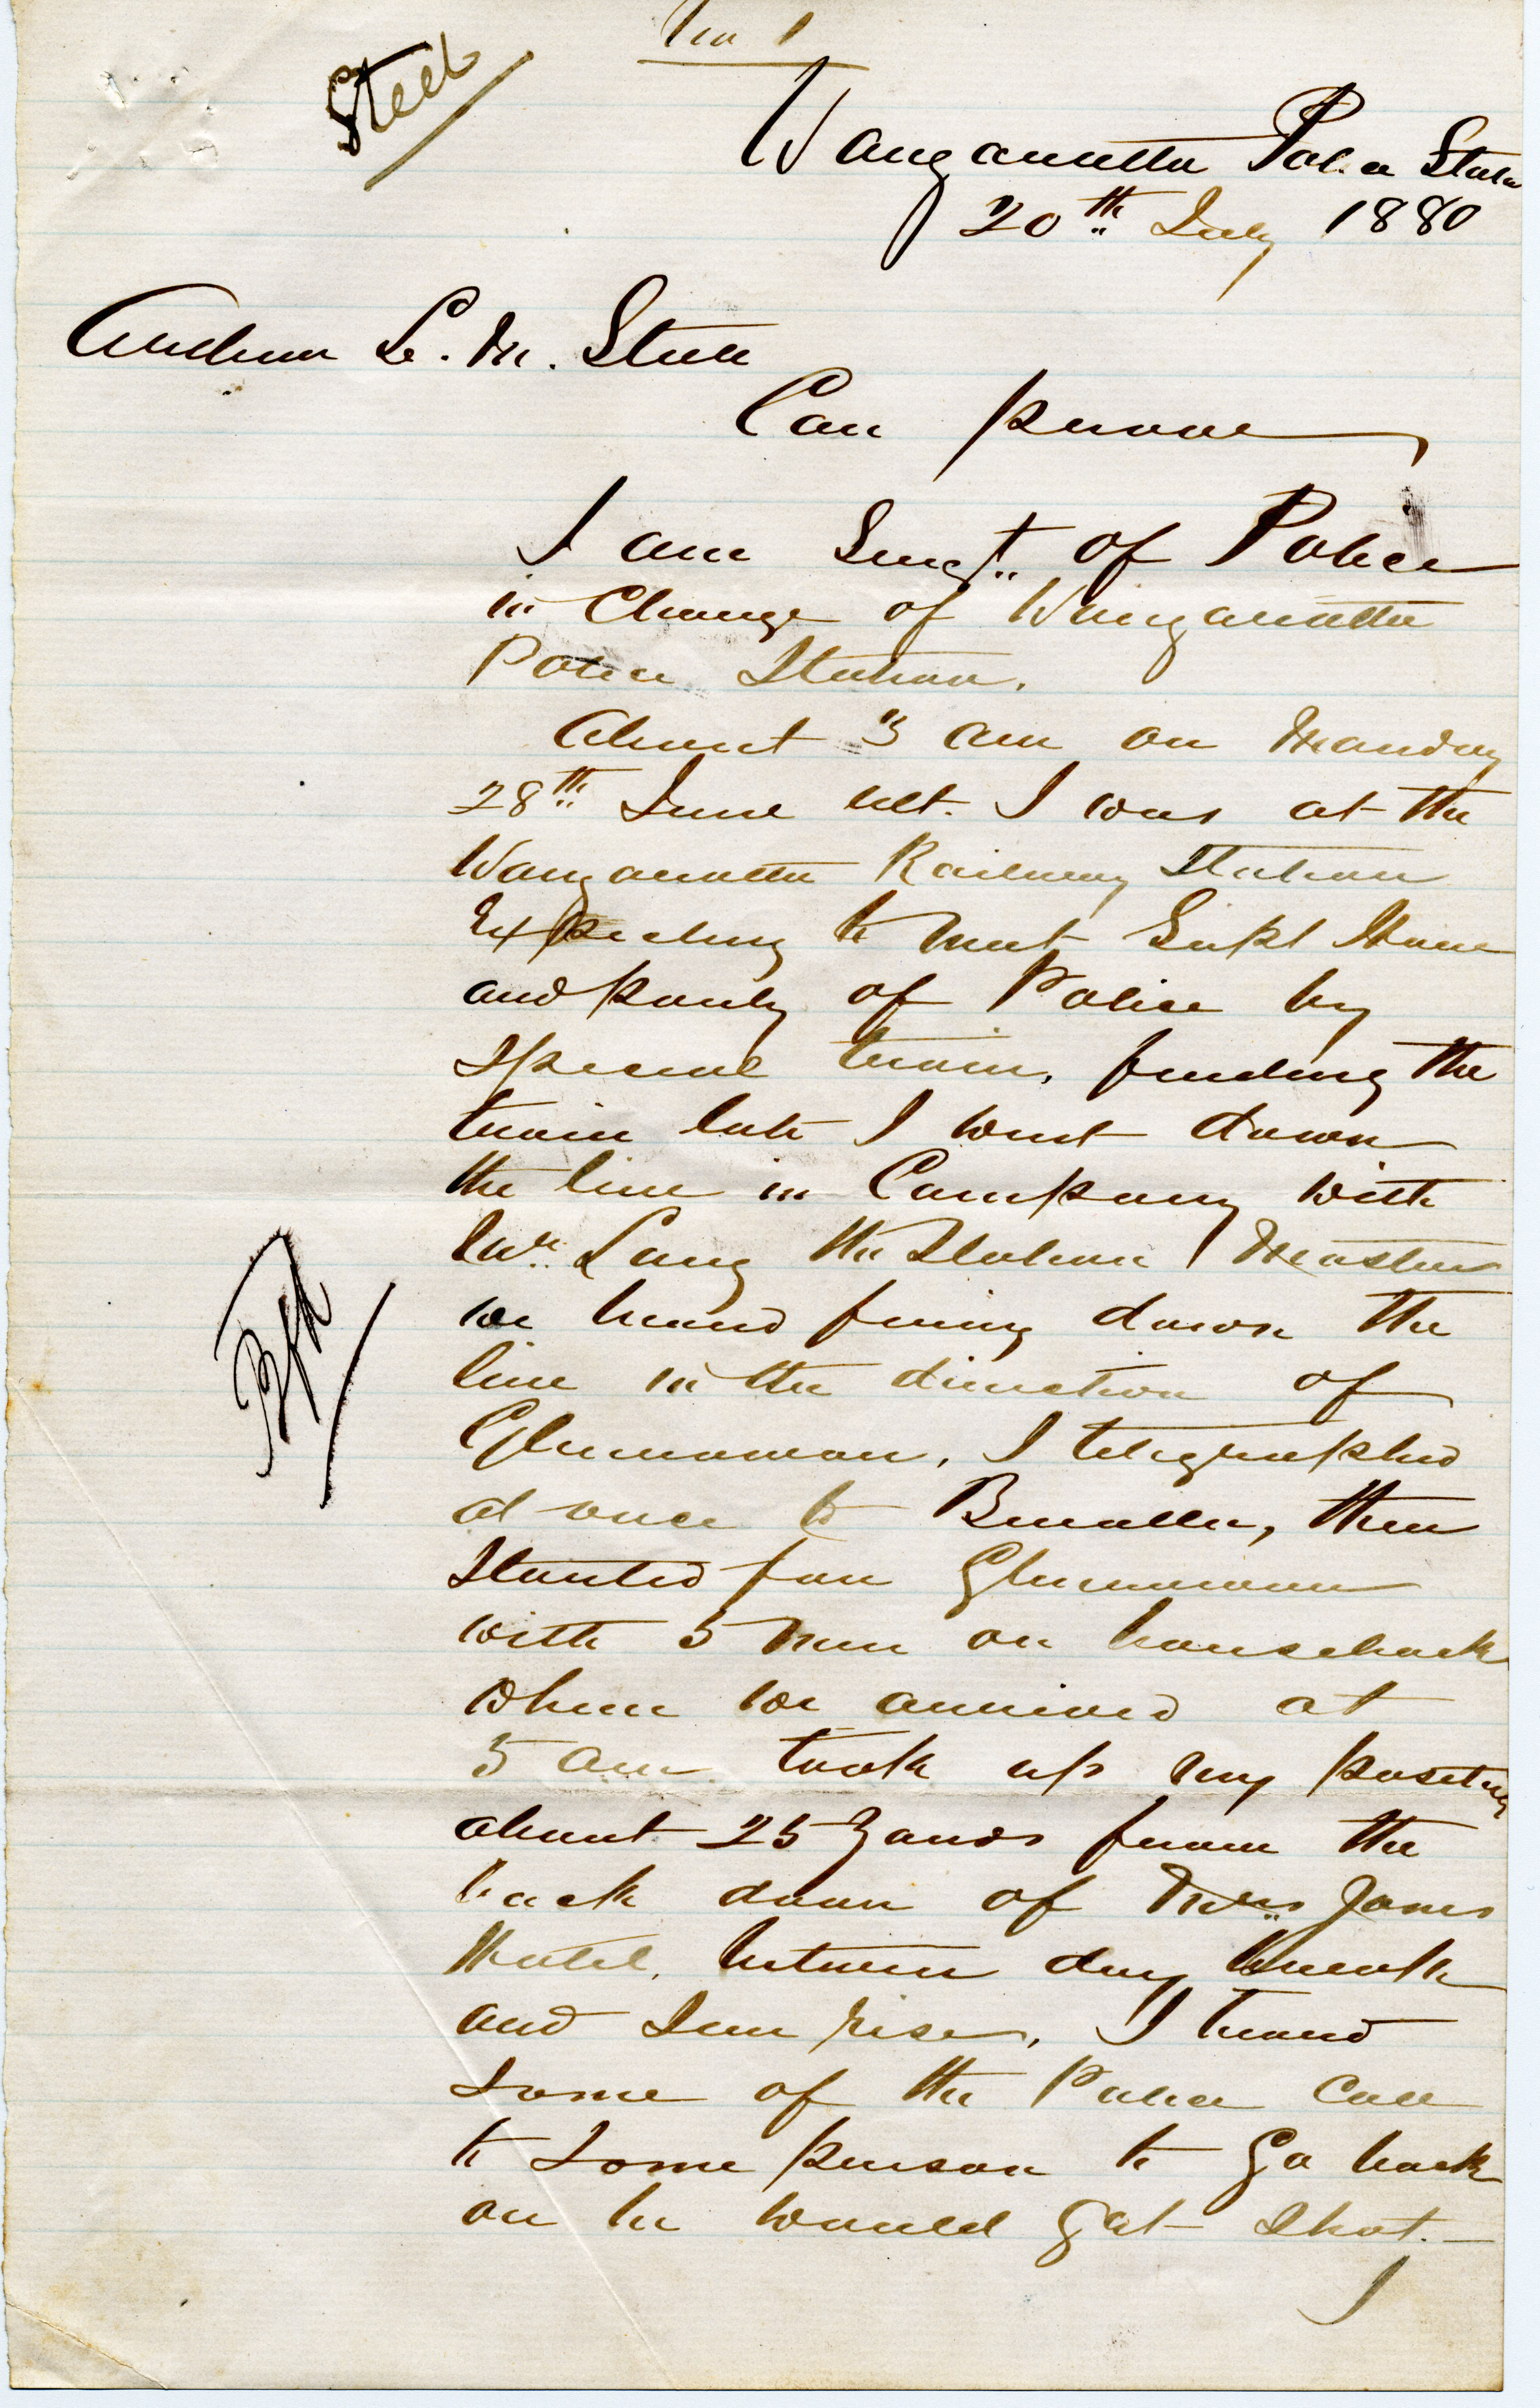 No 1
Steele
Wangaratta Police Station
20th July 1880
Arthur L. M. Steele
Can prove
I am Sergt. of Police
in Charge of Wangaratta
Police Station.
About 3 am on Monday
28th June ult. I was at the
Wangaratta Railway Station
Expecting to meet Supt Hare
and party of Police by
special train. finding the
train late I went down
the line in Company with
Mr. Lang the Station Master
we heard firing down the
line in the direction of
Glenrowan. I telegraphed
at once to Benalla, then
started for Glenrowan
with 5 men on horseback
where we arrived at
5 am took up my position
about 25 yards from the
back door of Mrs Jones
Hotel. between day break
and Sun rise. I heard
some of the Police call
to some person to Go back
or he would get shot.
I